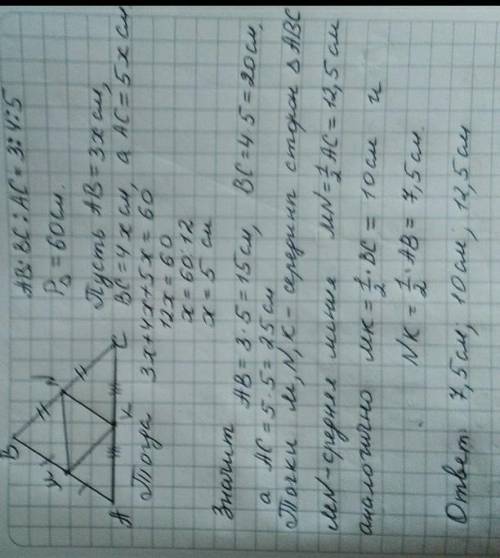 AB:BC:AC = 3:4:5
PΔ = 60см.
Пусть AB = 3x см,
BC = 4x см, а AC = 5x см
Тогда 3x+4x+5x = 60
12x = 60
x = 60:12
x = 5 см
B
M
N
A
K
C
Значит AB = 3·5 = 15см, BC = 4·5 = 20см,
а AC = 5·5 = 25см
Точки M, N, K - середины сторон ΔABC
MN - средняя линия MN = 1/2 AC = 12,5 см
аналогично MK = 1/2·BC = 10см и
NK = 1/2·AB = 7,5см
Ответ 7,5см; 10см; 12,5см